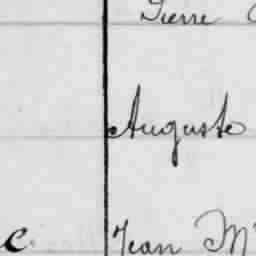 Pierre
Auguste
c. Jean M